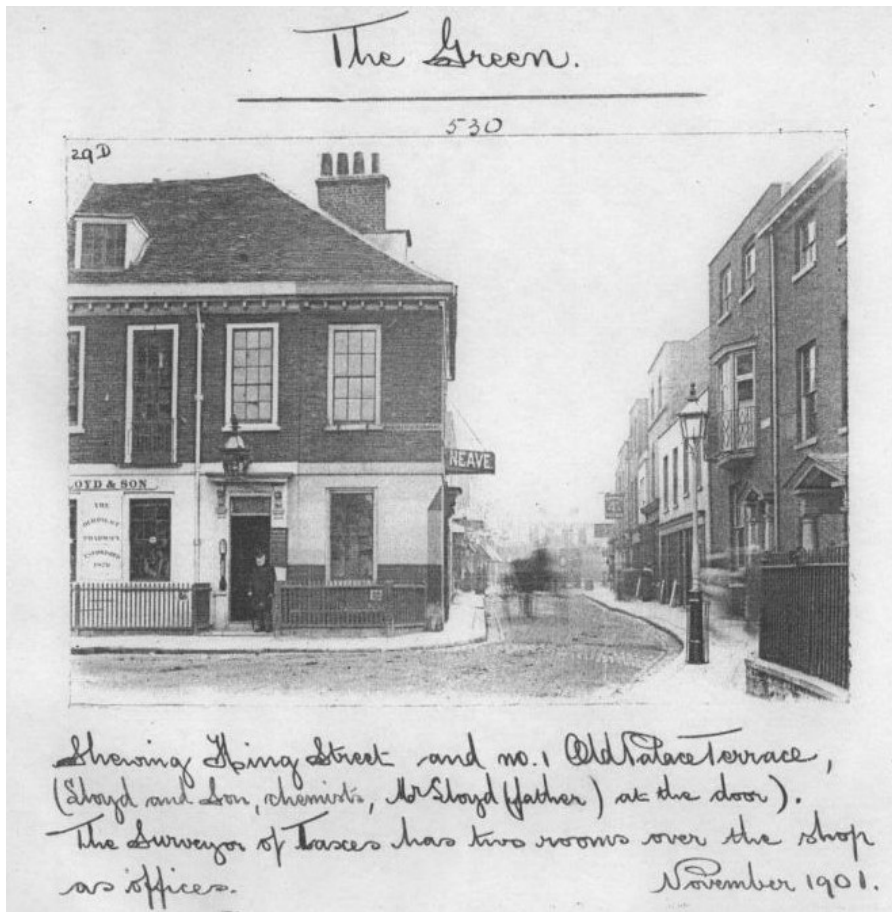 The Green.
530
29D
NEAVE
OYD & SON
THE
OLD PALACE
PHARMACY
ESTABLISHED
Shewing King Street and no. 1 Old Palace Terrace,
(Lloyd and Son, chemists, Mr Lloyd (father) at the door).
The Surveyor of Taxes has two rooms over the shop
as offices.
November 1901.